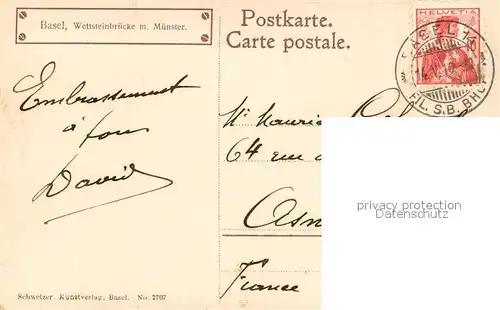 Basel, Wettsteinbrücke m. Münster.
Postkarte.
Carte postale.
HELVETIA
BASEL
FIL. S.B. BHF
Embrassement
à tous
David
Mr Maurice
64 rue
Asn
France
privacy protection
Datenschutz
Schweizer Kunstverlag, Basel. No. 2707